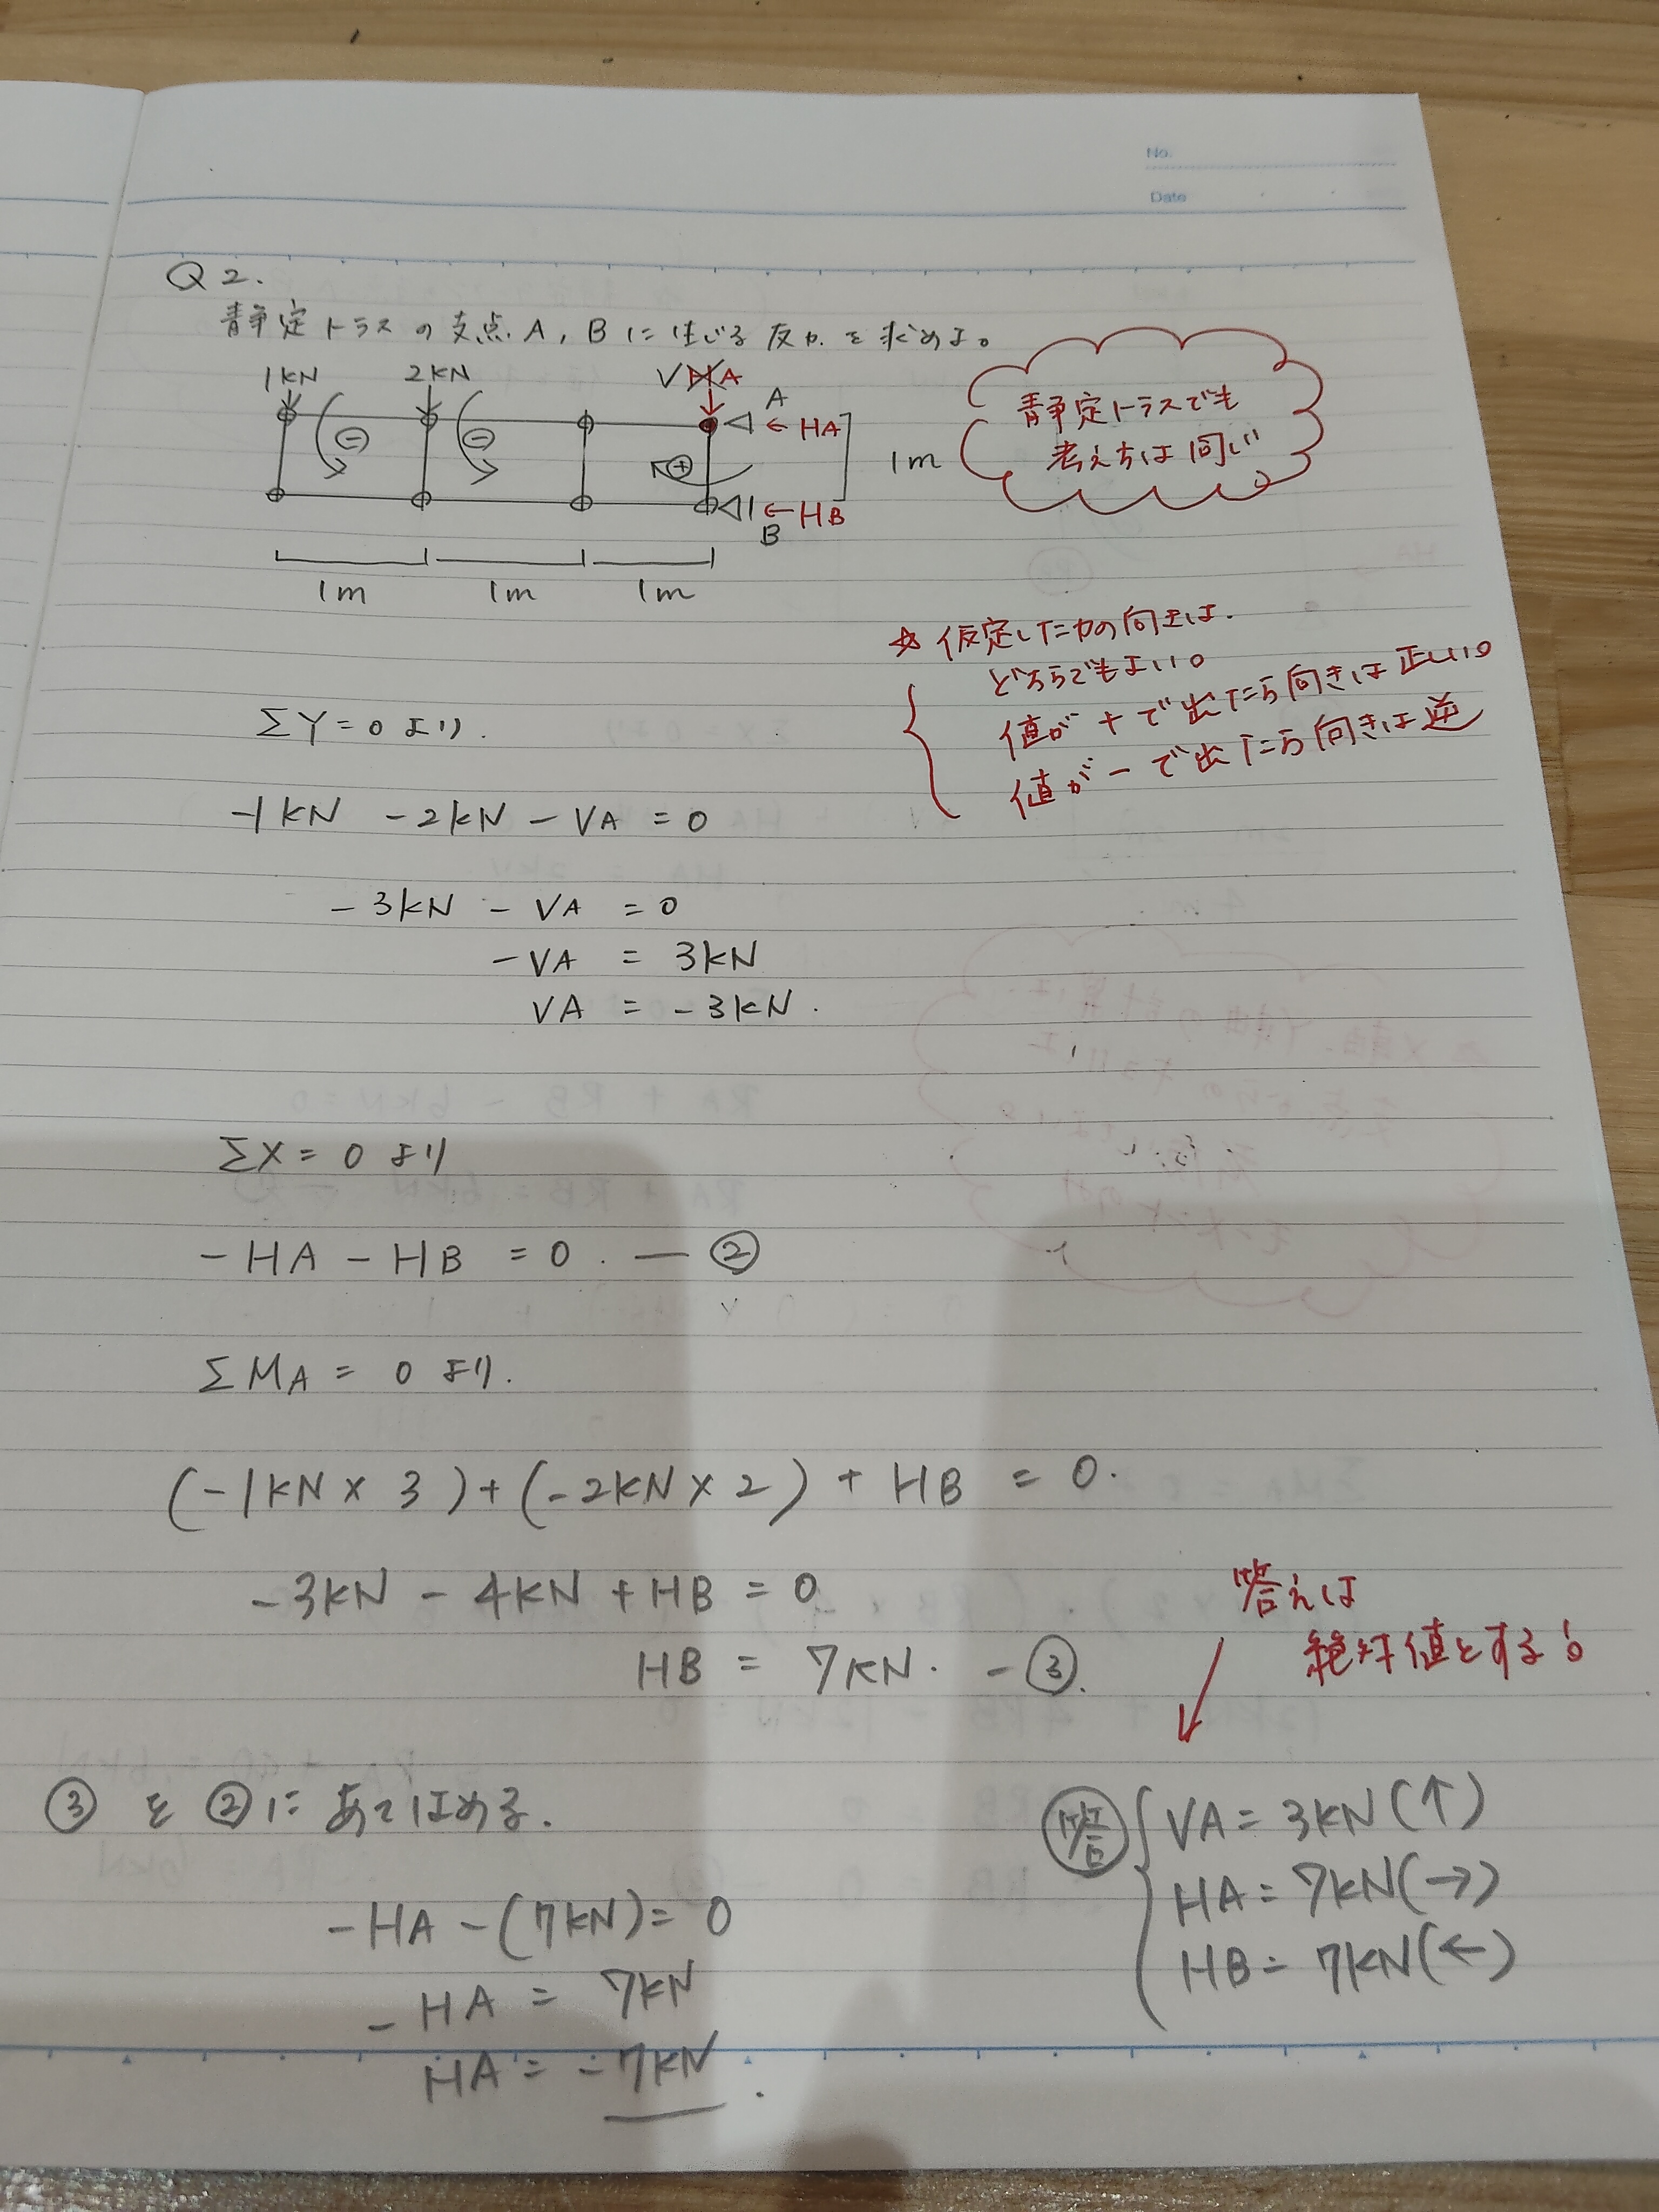 No.
Date
Q2.
静定トラスの支点A, Bに生じる反力を求めよ。
1kN 2kN VA
A
← HA
⊖ ⊖ ⊕
1m
← HB
B
1m 1m 1m
静定トラスでも
考え方は同じ
☆ 仮定した力の向きは.
どちらでもよい。
値が+で出たら向きは正しい。
値が-で出たら向きは逆
ΣY=0より.
-1kN -2kN - VA = 0
-3kN - VA = 0
-VA = 3kN
VA = -3kN.
ΣX=0より
-HA-HB=0. ― ②
ΣMA=0より.
(-1kN×3)+(-2kN×2)+HB=0.
-3kN-4kN+HB=0
HB=7kN. -③.
答えは
絶対値とする。
③を②にあてはめる.
-HA-(7kN)=0
-HA=7kN
HA=-7kN
答
VA=3kN(↑)
HA=7kN(→)
HB=7kN(←)